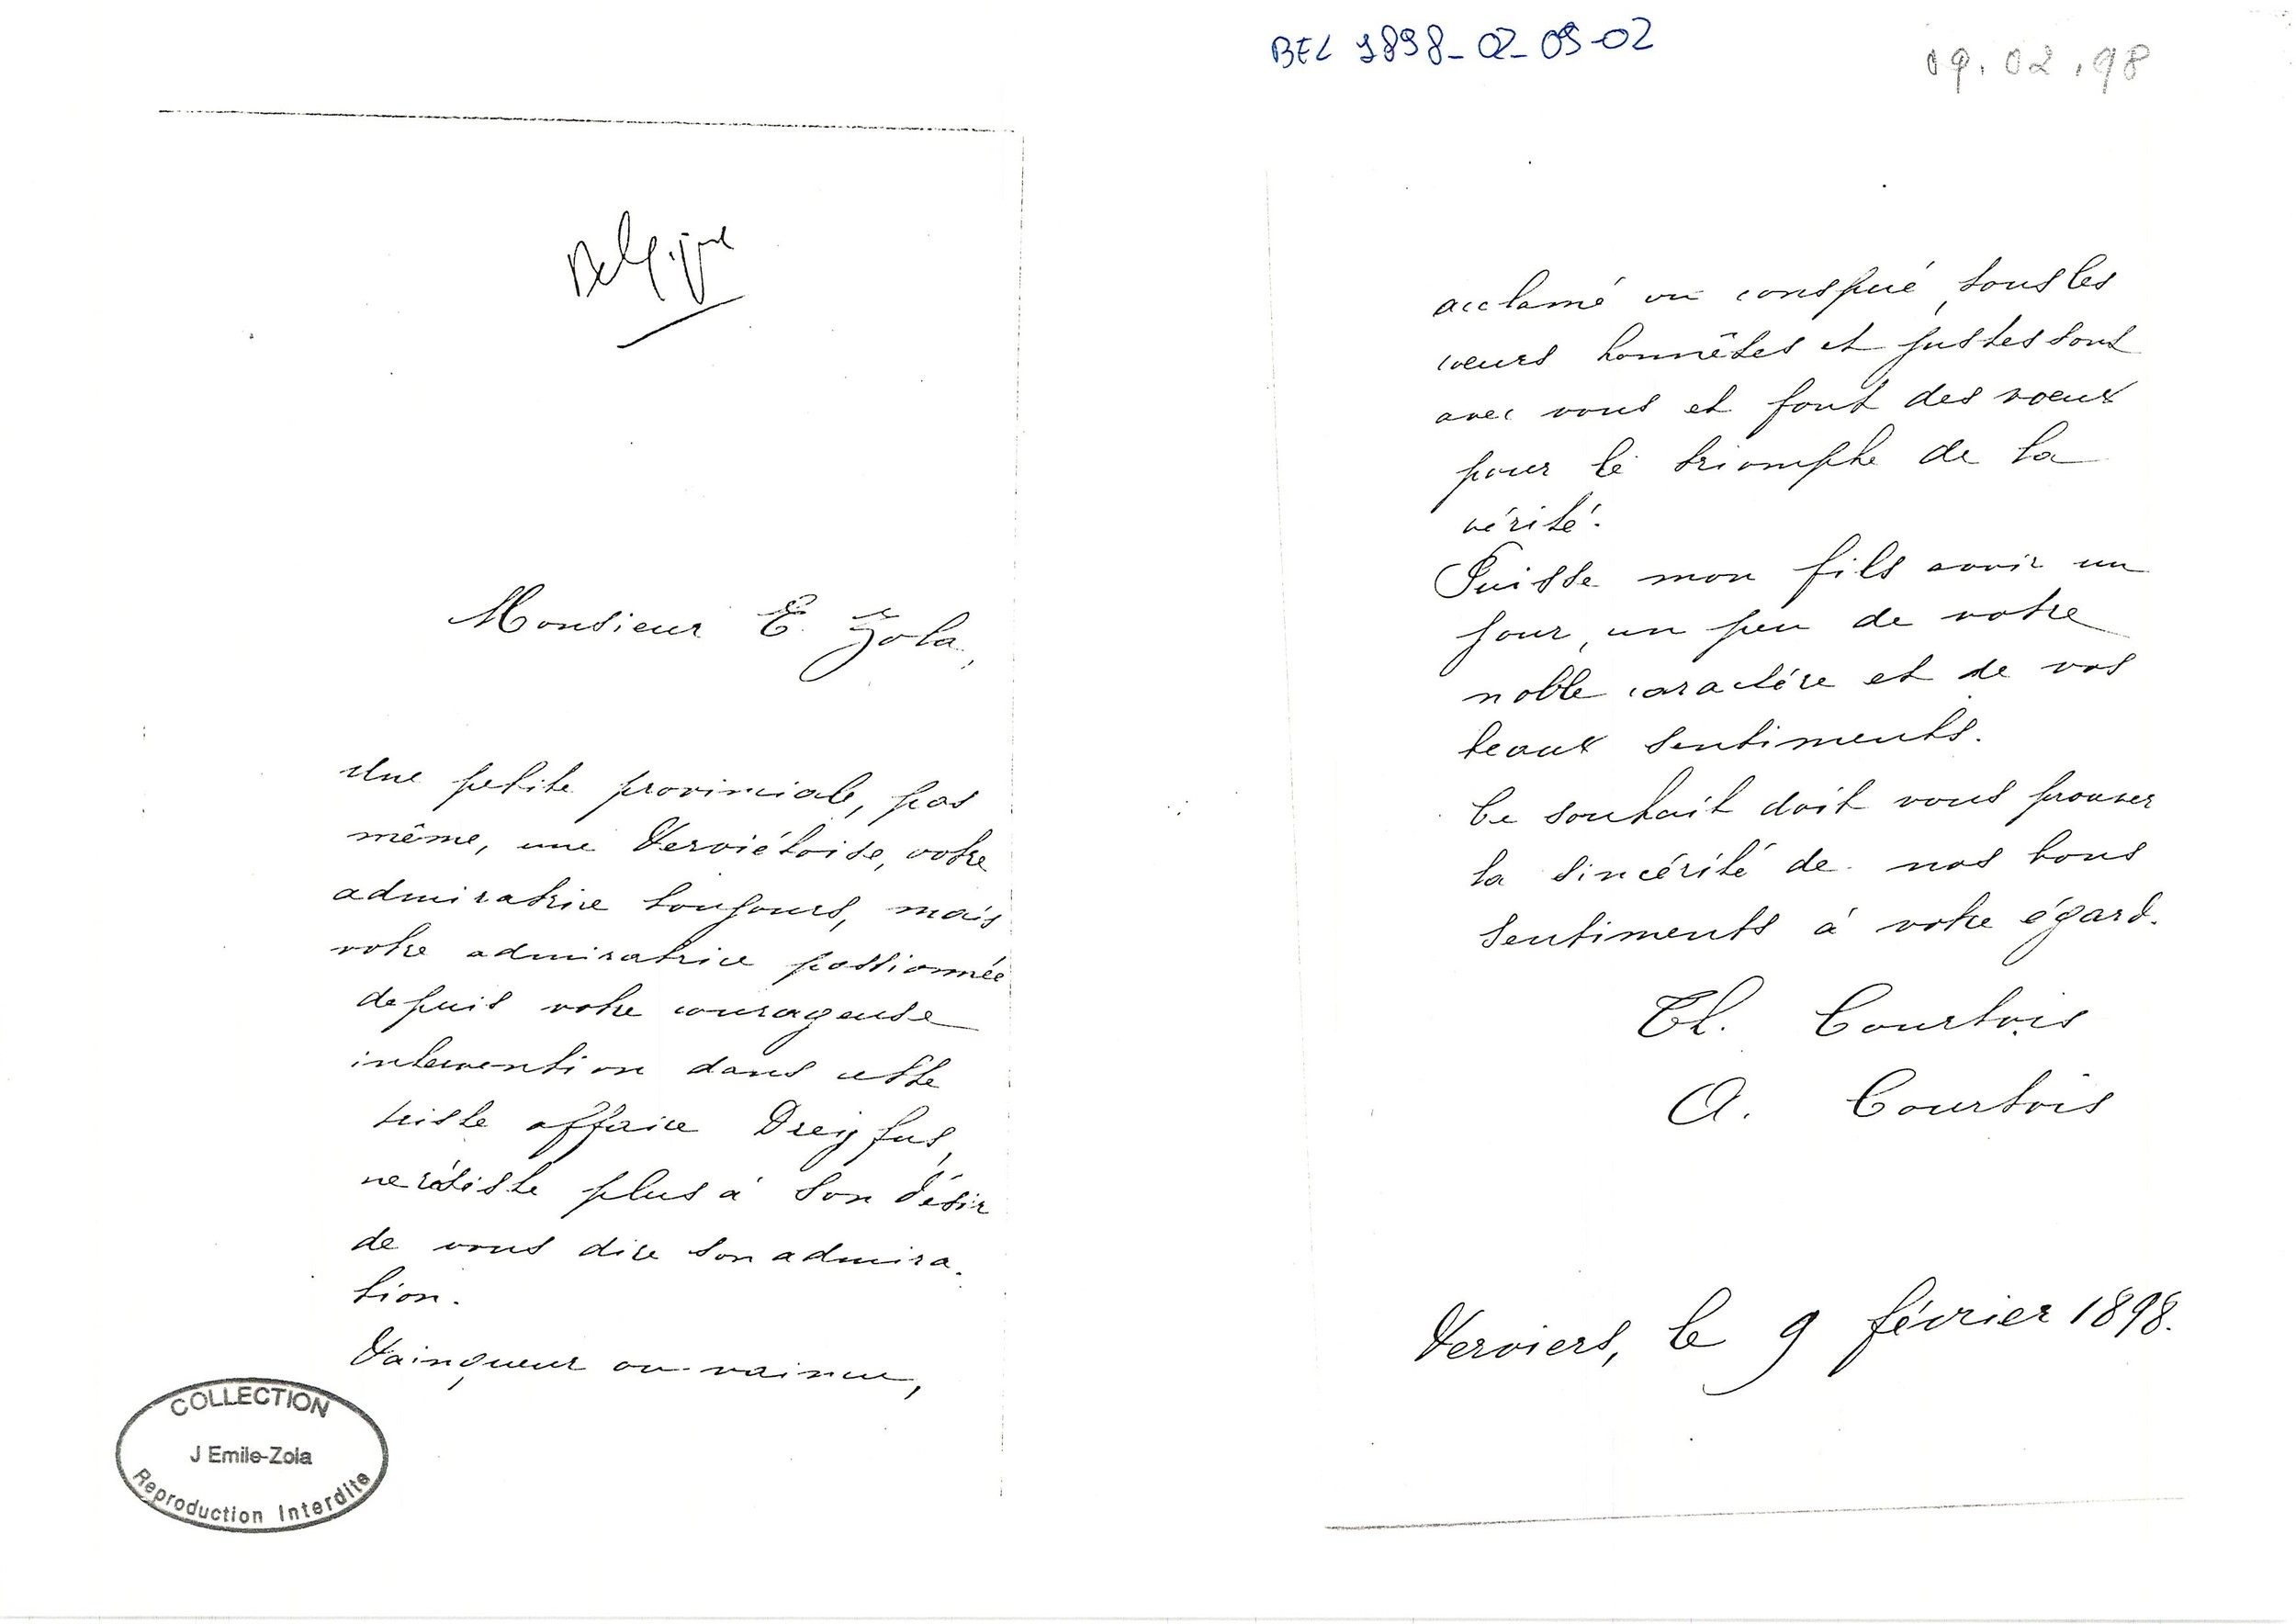 BEL 1898_02_09-02
09.02.98
Belgique
Monsieur E. Zola,
Une petite provinciale, pas
même, une Verviétoise, votre
admiratrice toujours, mais
votre admiratrice passionnée
depuis votre courageuse
intervention dans cette
triste affaire Dreyfus,
ne résiste plus à son désir
de vous dire son admira-
tion.
Vainqueur ou vaincu,
COLLECTION
J Emile-Zola
Reproduction Interdite
acclamé ou conspué, tous les
cœurs honnêtes et justes sont
avec vous et font des vœux
pour le triomphe de la
vérité.
Puisse mon fils avoir un
jour, un peu de votre
noble caractère et de vos
beaux sentiments.
Ce souhait doit vous prouver
la sincérité de nos bons
sentiments à votre égard.
Th. Courtois
A. Courtois
Verviers, le 9 février 1898.